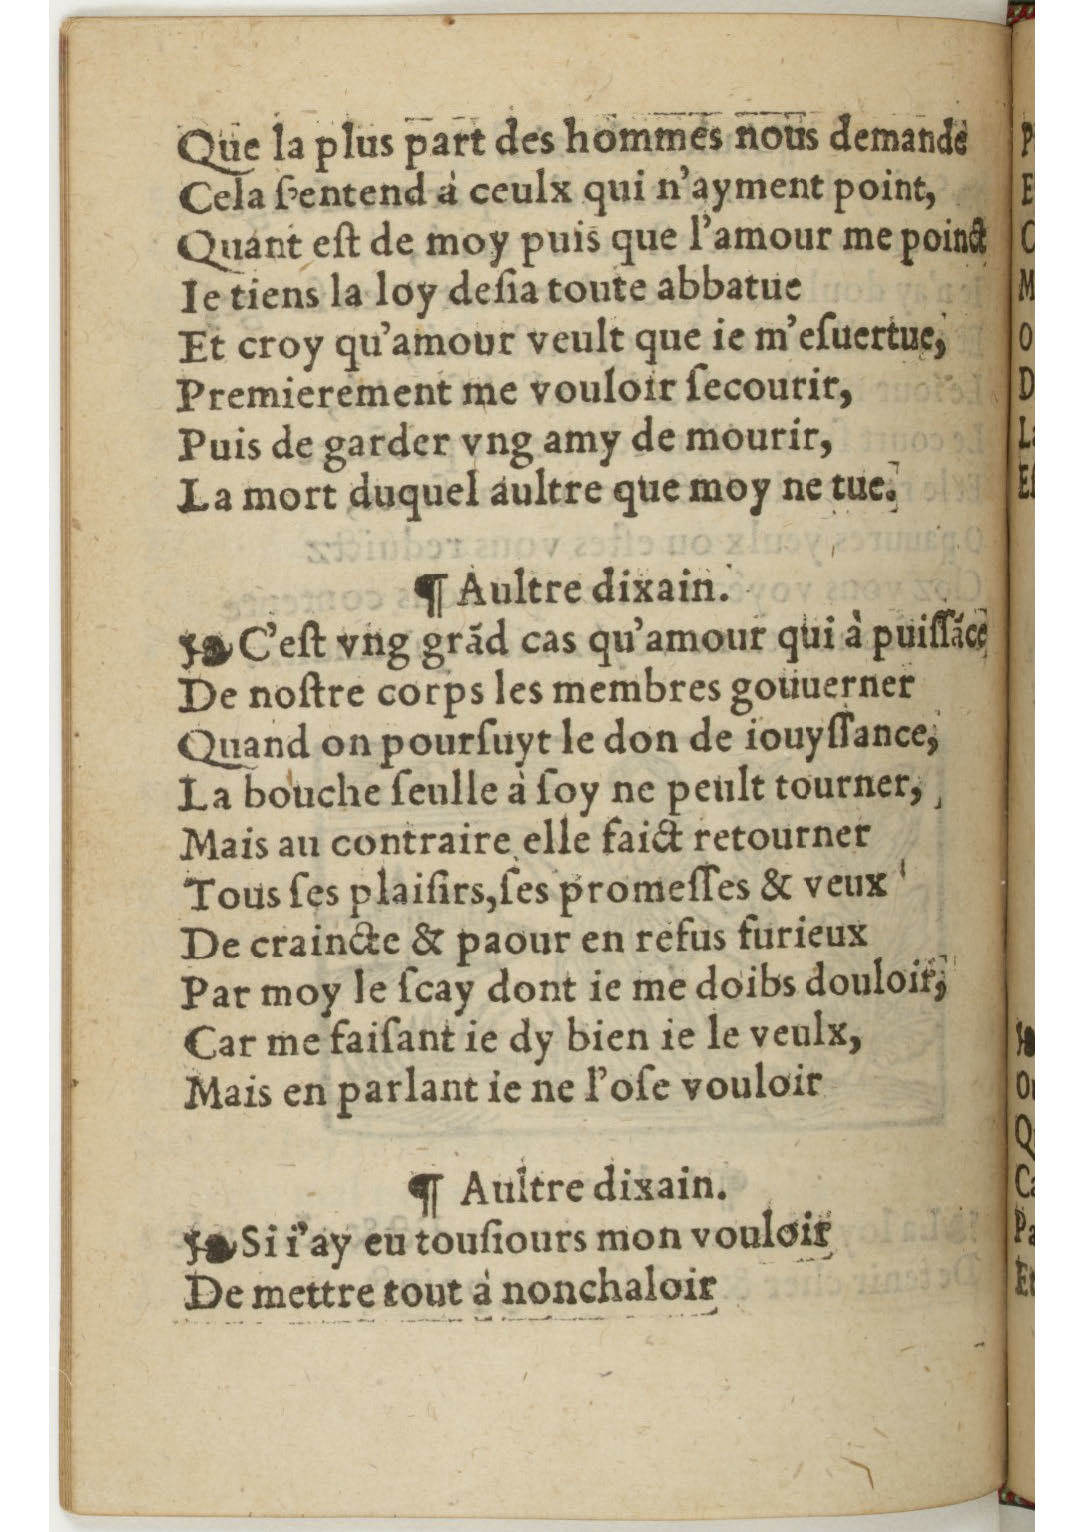 Que la plus part des hommes nous demande
Cela ſ'entend à ceulx qui n'ayment point,
Quant eſt de moy puis que l'amour me poinct
Ie tiens la loy deſia toute abbatue
Et croy qu'amour veult que ie m'eſuertue,
Premierement me vouloir ſecourir,
Puis de garder vng amy de mourir,
La mort duquel aultre que moy ne tue.
¶ Aultre dixain.
C'eſt vng grãd cas qu'amour qui à puiſſãce
De noſtre corps les membres gouuerner
Quand on pourſuyt le don de iouyſſance,
La bouche ſeulle à ſoy ne peult tourner,
Mais au contraire elle faict retourner
Tous ſes plaiſirs,ſes promeſſes & veux
De craincte & paour en refus furieux
Par moy le ſcay dont ie me doibs douloir,
Car me faiſant ie dy bien ie le veulx,
Mais en parlant ie ne l'oſe vouloir
¶ Aultre dixain.
Si i'ay eu touſiours mon vouloir
De mettre tout à nonchaloir